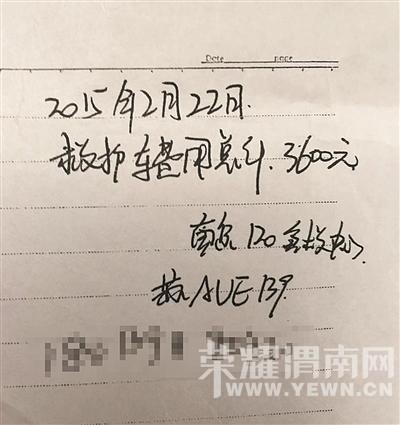 Date page
2015年2月22日.
救护车费用总计.3600元
120急救中心.
陕AUE139.
荣耀渭南网
WWW.YEWN.CN